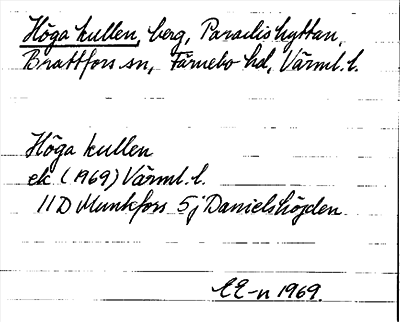 Höga kullen, berg, Paradishyttan,
Brattfors sn, Färnebo hd, Värml. l.
Höga kullen
ek (1969) Värml. l.
11D Munkfors 5j Danielshöjden.
EE-n 1969.